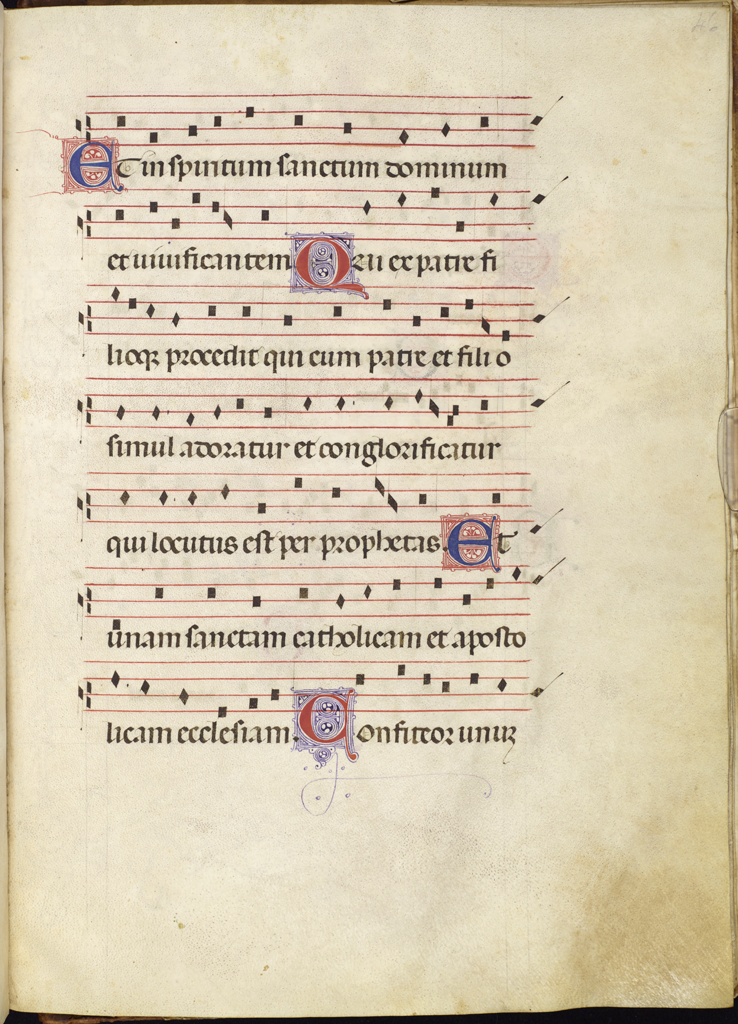 Et in spiritum sanctum dominum
et uiuificantem Qui ex patre fi
lioqꝫ procedit qui cum patre et filio
simul adoratur et conglorificatur
qui locutus est per prophetas. Et
unam sanctam catholicam et aposto
licam ecclesiam. Confiteor unuꝫ